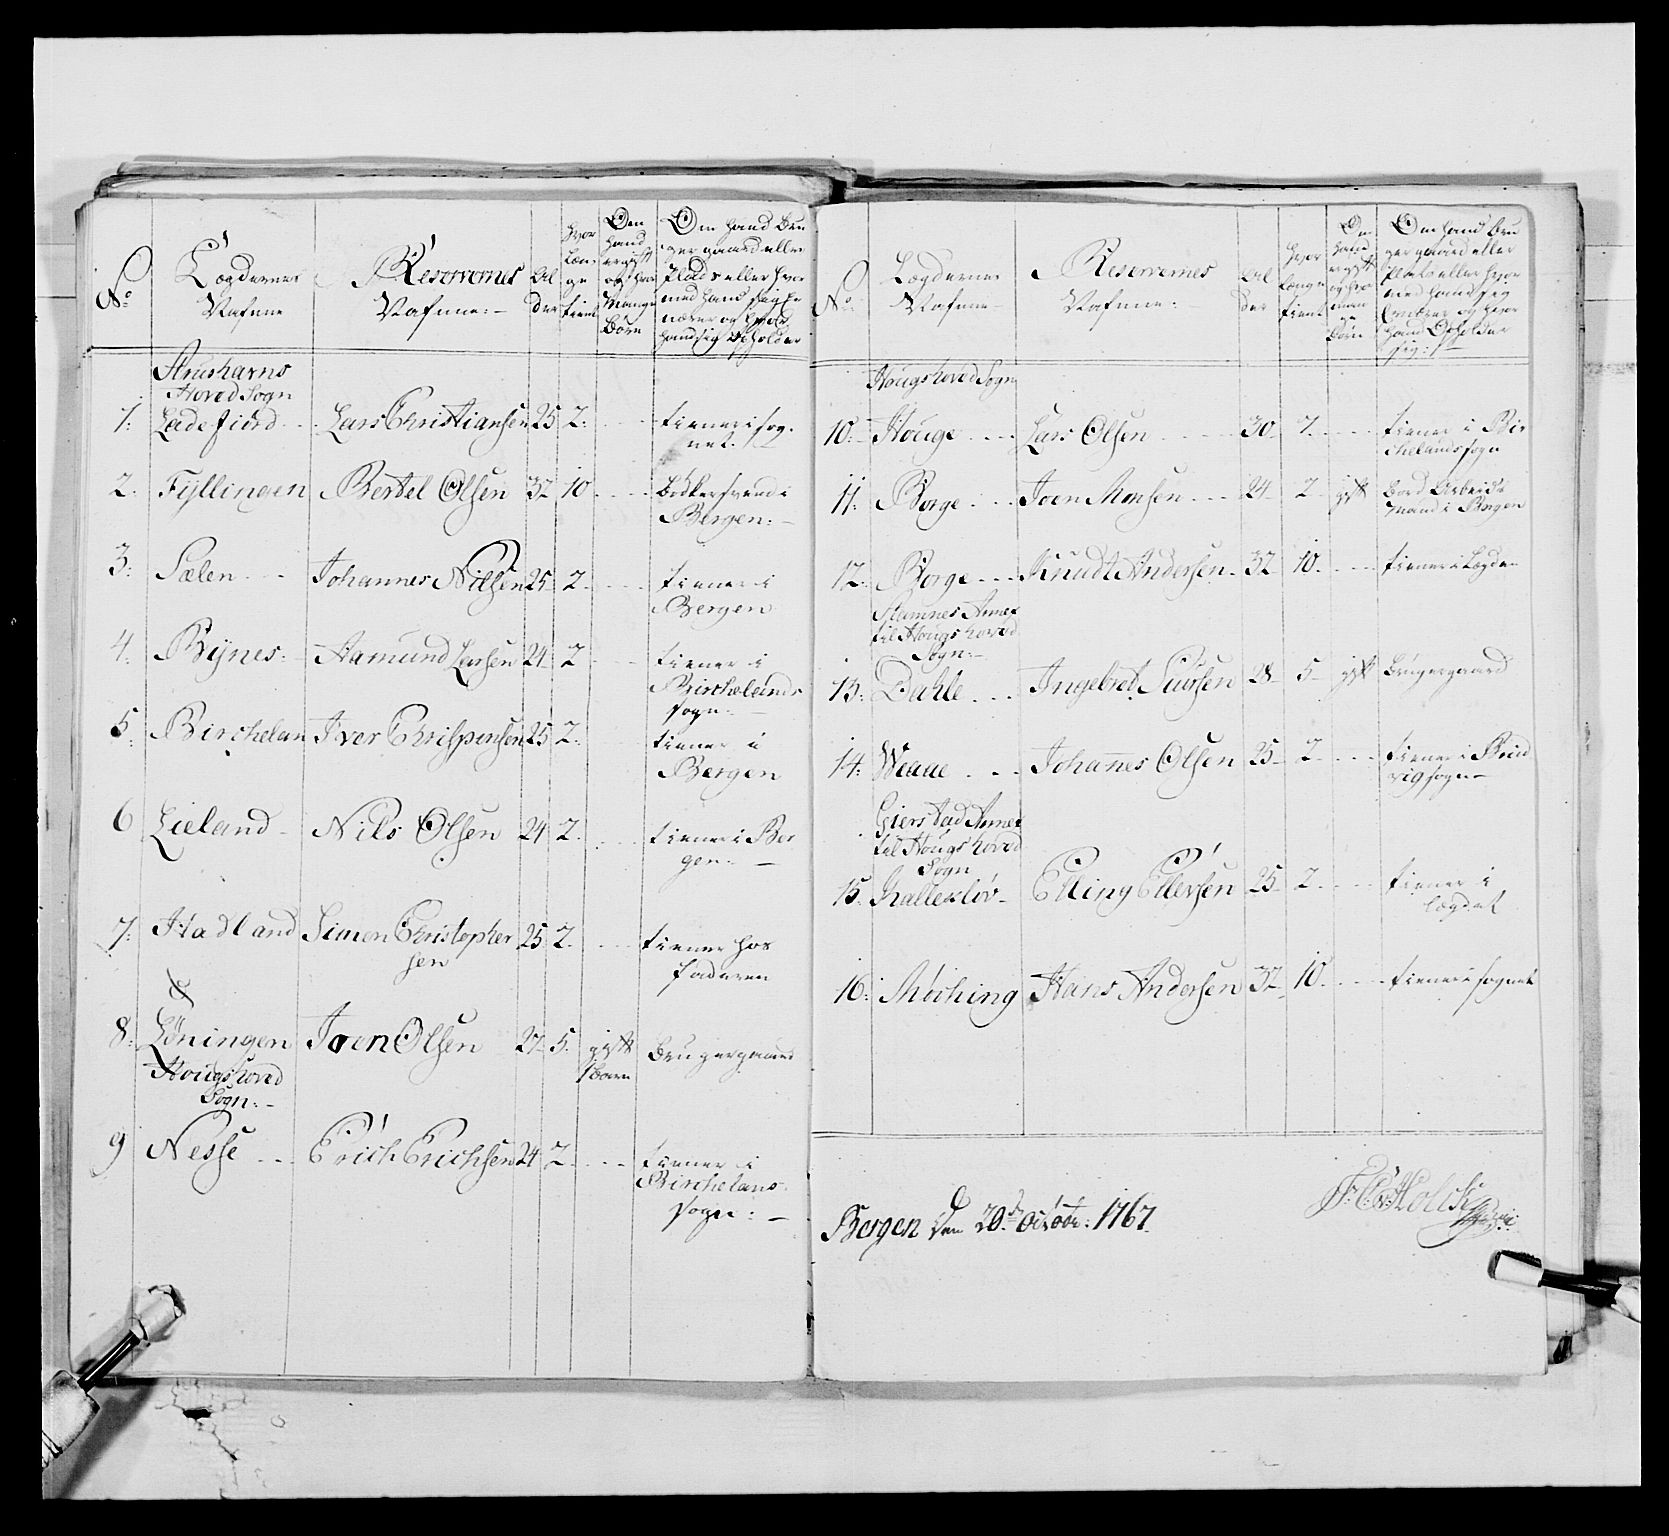 No
Lægdernes
Nafne
Reservernes
Nafne:-
Al
der
hvor
Læn
ge
tient
Om
hand
er gift
og hvor
Mange
Børn
Om hand Bru
ger gaard eller
Plads eller hvor
med hand sig er
nærer og hvor
hand sig Opholder
Strusharns
Hoved Sogn
1: Ladefiord Lars Christiansen 25 2. tiener i sog
net.
2. Fyllingen Bertel Olsen 32 10 Bødkersvend i
Bergen:-
3. Sælen Johannes Nilsen 25 2 tiener i
Bergen
4. Bijnes: Aamund Larsen 24 2 tiener i
Birchelands
sogn
5. Birchelan Iver Chrispensen 25 2. tiener i
Bergen
6 Lieland Nils Olsen 24 2. tiener i Ber
gen:-
7. Hadland Simon Christopher 25 2. tiener hos
sen faderen
8: Løningen Joen Olsen 27 5. gift bruger gaard
1 barn
Hougs hoved
Sogn:-
9 Nesse Erich Erichsen 24 2 tiener i
Birchelans
sogn:-
No
Lægdernes
Nafne
Reservernes
Nafne:
Al
der
hvor
længe
tient
Om
hand
er gift
og hvor
man
ge
Børn
Om hand Bru
ger gaard eller
Plads eller hvor
med hand sig
Ernærer og hvor
hand Opholder
sig:-
Hougs hoved Sogn
10: Houge Lars Olsen 30 7. tiener i Bir
chelands sogn
11: Borge Joen Monsen 24 2 gift bord Arbeids
Mand i Bergen
12. Borge Knudt Andersen 32 10. tiener i Lægden
Stamnes Annex
til Hougs hoved
Sogn:-
13: Dahle Ingebret Siursen 28 5 gift bruger gaard
14: Weaae Johannes Olsen 25 2 tiener i Brud
vig sogn-
Gierstad Annex
til Hougs hoved
Sogn
15. Kalleklöv Elling Ellersen 25 2. tiener i
lægdet
16: Möching Hans Andersen 32 10. tiener i sognet
Bergen den 20de Octobr: 1767.
F: C: v: Holck